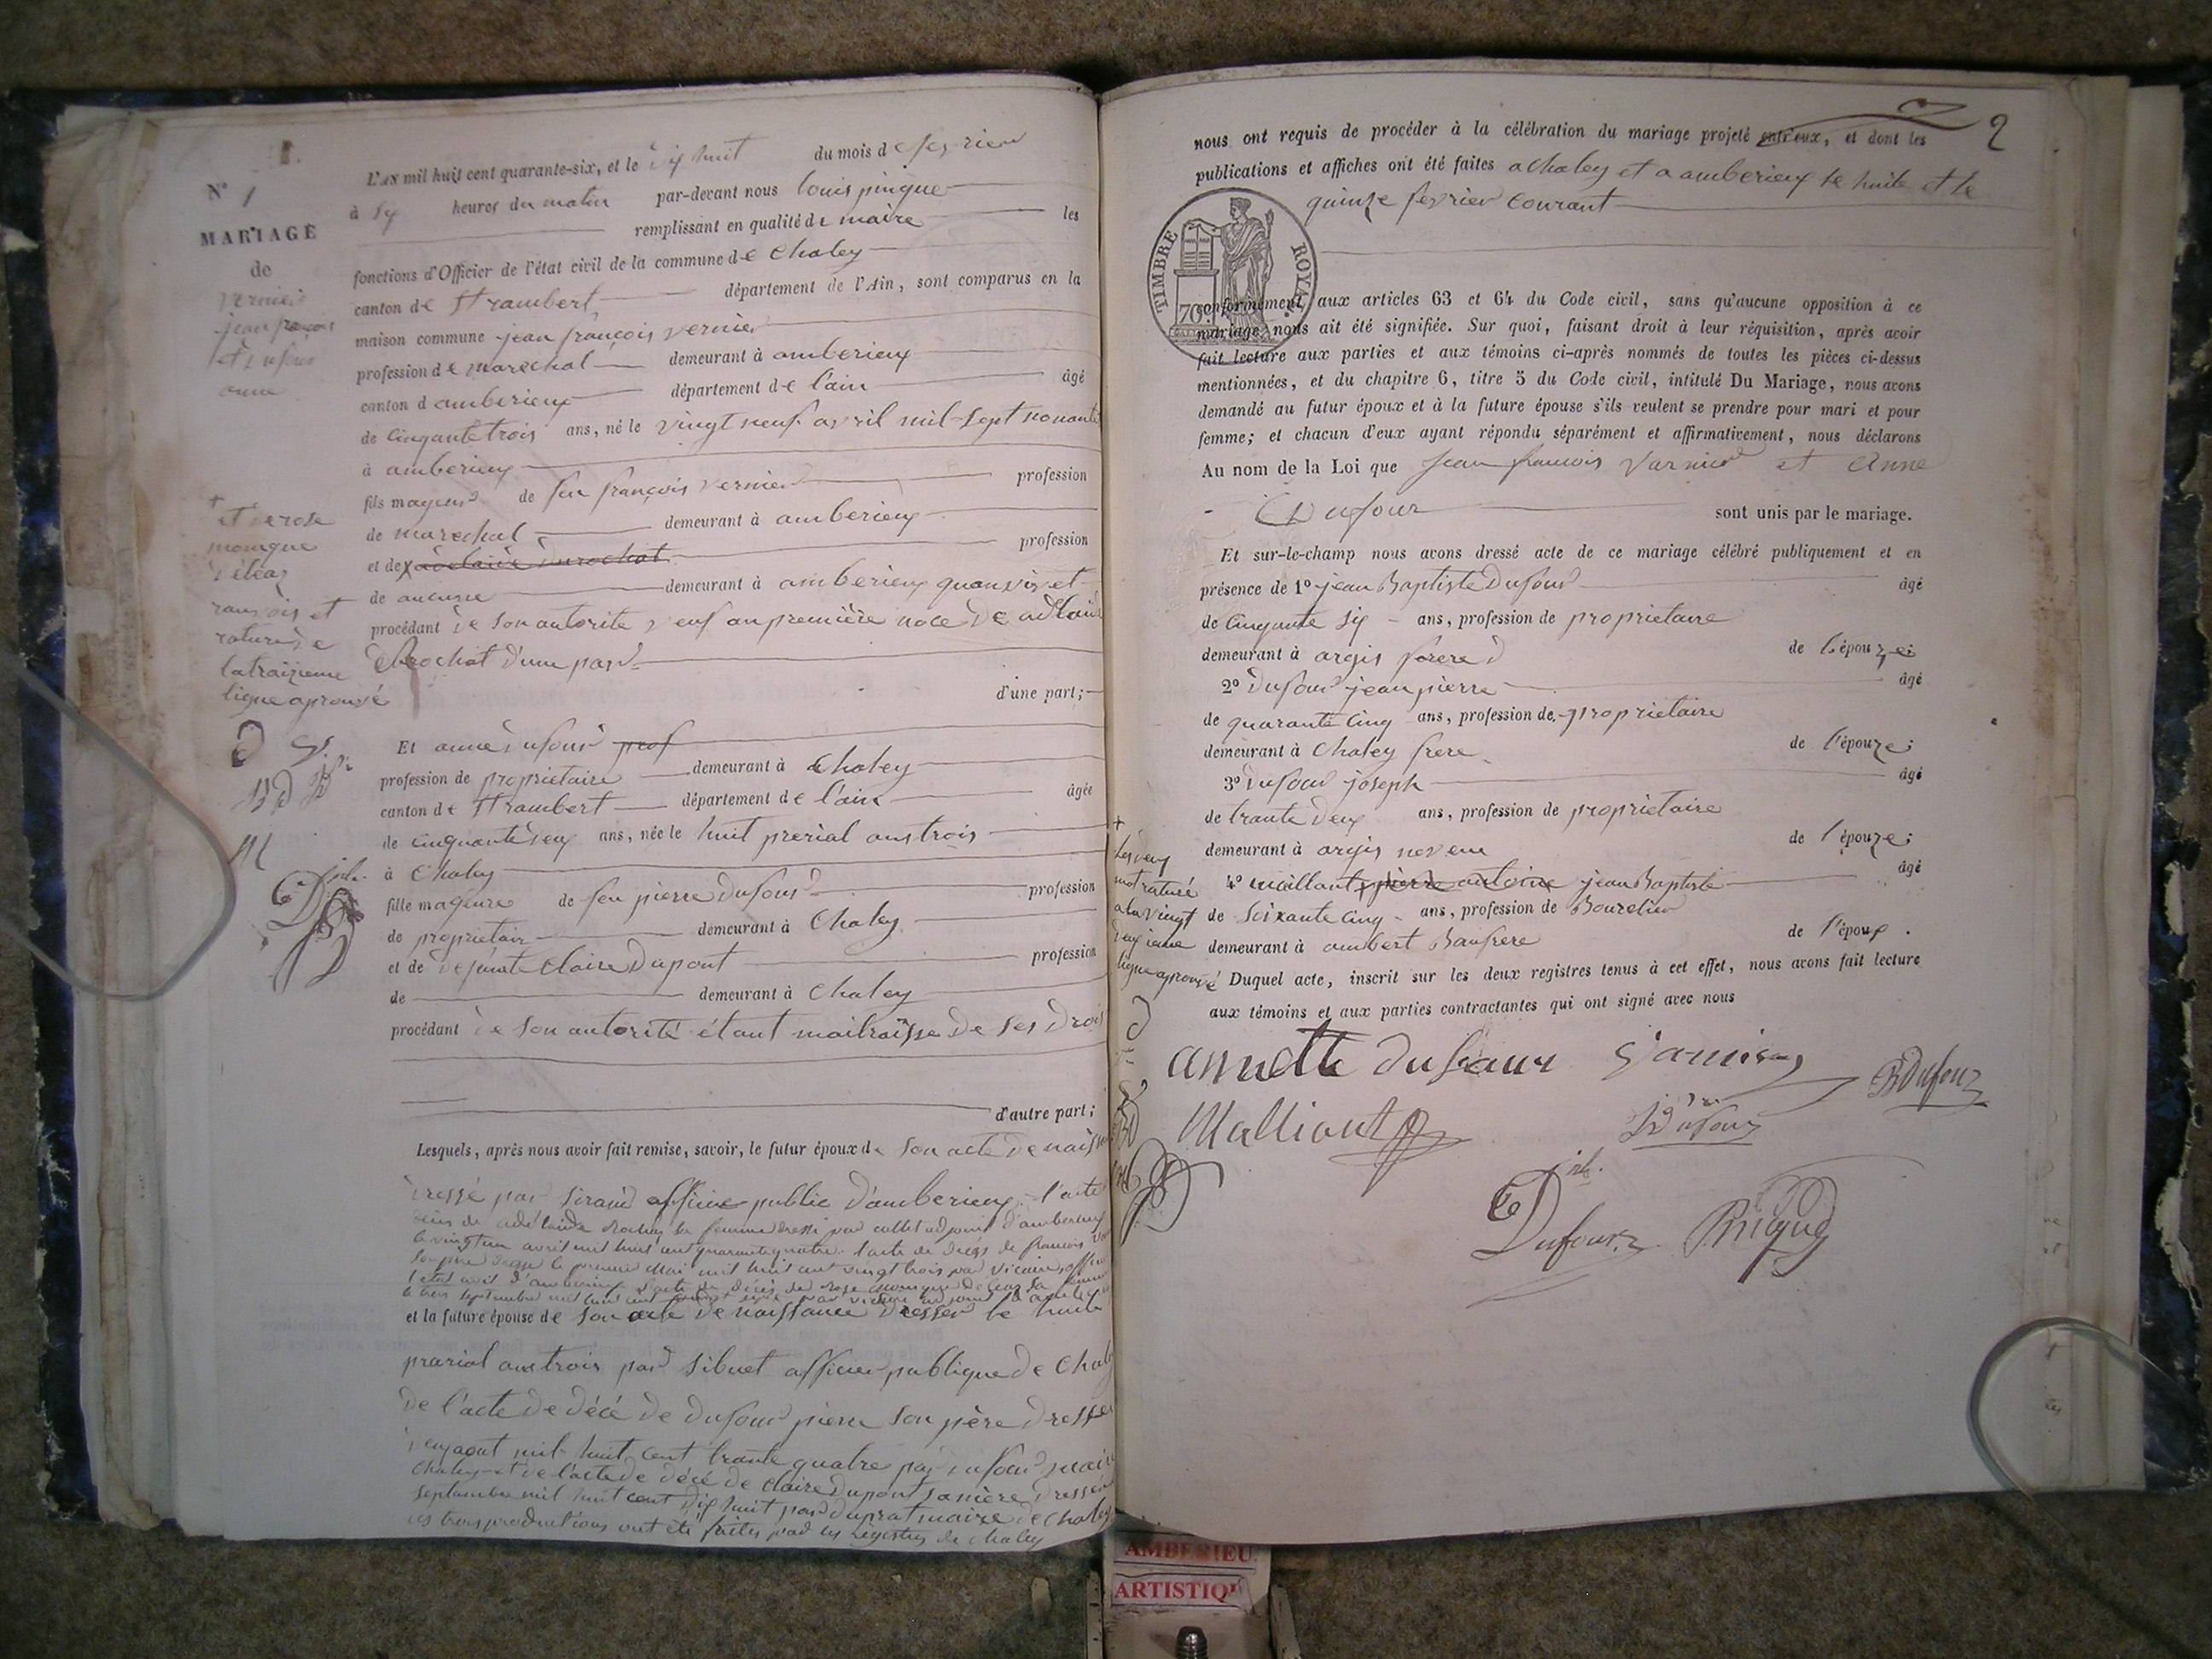 1.
N° 1
MARIAGE
de
vernier
jean françois
et dufour
anne
L'AN mil huit cent quarante-six, et le dix huit du mois de fevrier
à six heures du matin par-devant nous louis pingue
remplissant en qualité de maire les
fonctions d'Officier de l'état civil de la commune de Chaley
canton de St rambert département de l'Ain, sont comparus en la
maison commune jean françois vernier
profession de marechal demeurant à amberieux
canton d amberieux département de l'ain âgé
de cinquante trois ans, né le vingt neuf avril mil sept nonante
à amberieux
fils majeur de feu françois vernier profession
de marechal demeurant à amberieux
et de adelaide durochat profession
de aucune demeurant à amberieux quanvivet
procédant de son autorité veuf en première noce de adlaide
Rochat d'une part
d'une part;
+
et de rose
monique
deleaz
ranvois et
rature de
la traizieme
ligne aprouvé
Et anne dufour prof
profession de propriétaire demeurant à Chaley
canton de St rambert département de l'ain âgée
de cinquante deux ans, née le huit prerial ans trois
à Chaley
fille majeure de feu pierre dufour profession
de proprietair demeurant à Chaley
et de defunte Claire Dupont profession
de demeurant à Chaley
procédant de son autorité étant maitraisse de ses droi
d'autre part;
Lesquels, après nous avoir fait remise, savoir, le futur époux de son acte de naiss
dressé par sirand officier public d'amberieux, l'acte
décès de adélaide rochat sa femme dressé par collet adjoint d'amberieux
le vingt un avril mil huit cent quarante quatre. l'acte de décès de françois
son père dressé le premier mai mil huit cent vingt trois par vicaire, offi
l'etat civil d'amberieux l'acte de décès de rose monique deleaz sa
le trois septembre mil huit cent par vicaire adjoint d'amb
et la future épouse de son acte de naissance dresser le huit
prarial ans trois par sibuet officier publique de Chaley
de l'acte de décé de dufour pierre son père dresser
deux aout mil huit cent trante quatre par dufour maire
Chaley et de l'acte de décé de Claire Dupont sa mère dresser
septembre mil huit cent dix huit par duprat maire de Chaley
les trois productions ont été faites par les registres de Chaley
2
nous ont requis de procéder à la célébration du mariage projeté entr'eux, et dont les
publications et affiches ont été faites a chaley et a amberieux le huit et le
quinze fevrier courant
TIMBRE ROYAL
70
conformément aux articles 63 et 64 du Code civil, sans qu'aucune opposition à ce
mariage nous ait été signifiée. Sur quoi, faisant droit à leur réquisition, après avoir
fait lecture aux parties et aux témoins ci-après nommés de toutes les pièces ci-dessus
mentionnées, et du chapitre 6, titre 5 du Code civil, intitulé Du Mariage, nous avons
demandé au futur époux et à la future épouse s'ils veulent se prendre pour mari et pour
femme; et chacun d'eux ayant répondu séparément et affirmativement, nous déclarons
Au nom de la Loi que Jean francois Varnier et Anne
Dufour sont unis par le mariage.
Et sur-le-champ nous avons dressé acte de ce mariage célébré publiquement et en
présence de 1° jean Baptiste Dufour âgé
de Cinquante six ans, profession de proprietaire
demeurant à argis frere de l'épouze;
2° dufour jean pierre âgé
de quarante cinq ans, profession de proprietaire
demeurant à Chaley frere de l'épouze;
3° dufour joseph âgé
de trante deux ans, profession de proprietaire
demeurant à argis neveu de l'épouze;
4° maillant pierre antoine jean Baptiste âgé
de Soixante cinq ans, profession de Bourelier
demeurant à ambert Baufrere de l'époux.
Duquel acte, inscrit sur les deux registres tenus à cet effet, nous avons fait lecture
aux témoins et aux parties contractantes qui ont signé avec nous
+
les deux
mot raturé
a la vingt
deuxieme
ligne aprouvé
annette dufaur
BDufour
Malliant
Dufour
Dufour
Pingue
AMBERIEU
ARTISTIQU